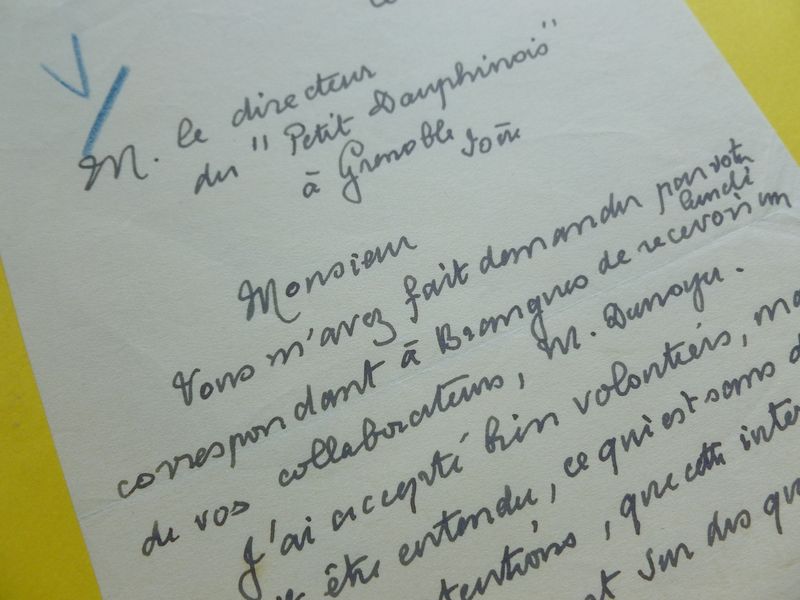 M. le directeur
du "Petit Dauphinois"
à Grenoble
Monsieur
Vous m'avez fait demander par votre
lundi
correspondant à Brangues de recevoir un
de vos collaborateurs, M. Dunoyer.
J'ai accepté bien volontiers, ma
être entendu, ce qui est sans d
tentions, que cette inter
t sur des qu